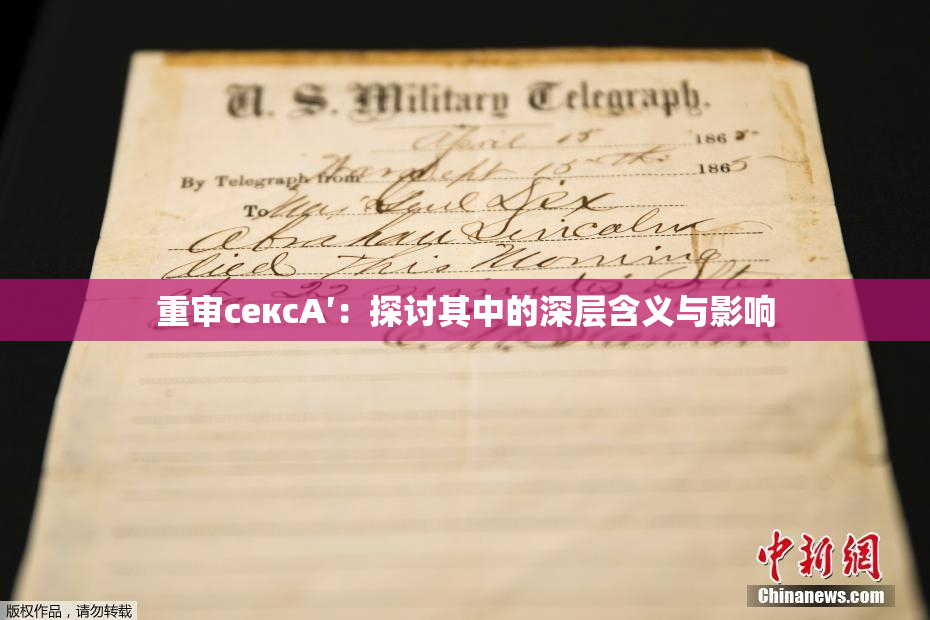 U. S. Military Telegraph.
April 15 1865
By Telegraph from War Dept 15th 1865
To Maj Genl Dix
Abraham Lincoln
died This Morning
22 minutes after
重审сексА′：探讨其中的深层含义与影响
E. M. Stanton
中新網
Chinanews.com
版权作品，请勿转载